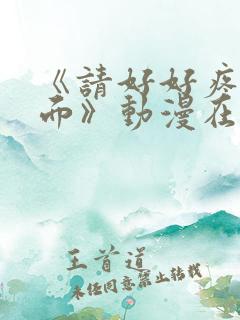 《請好好疼
而》動漫在
王首道
未经同意禁止转载